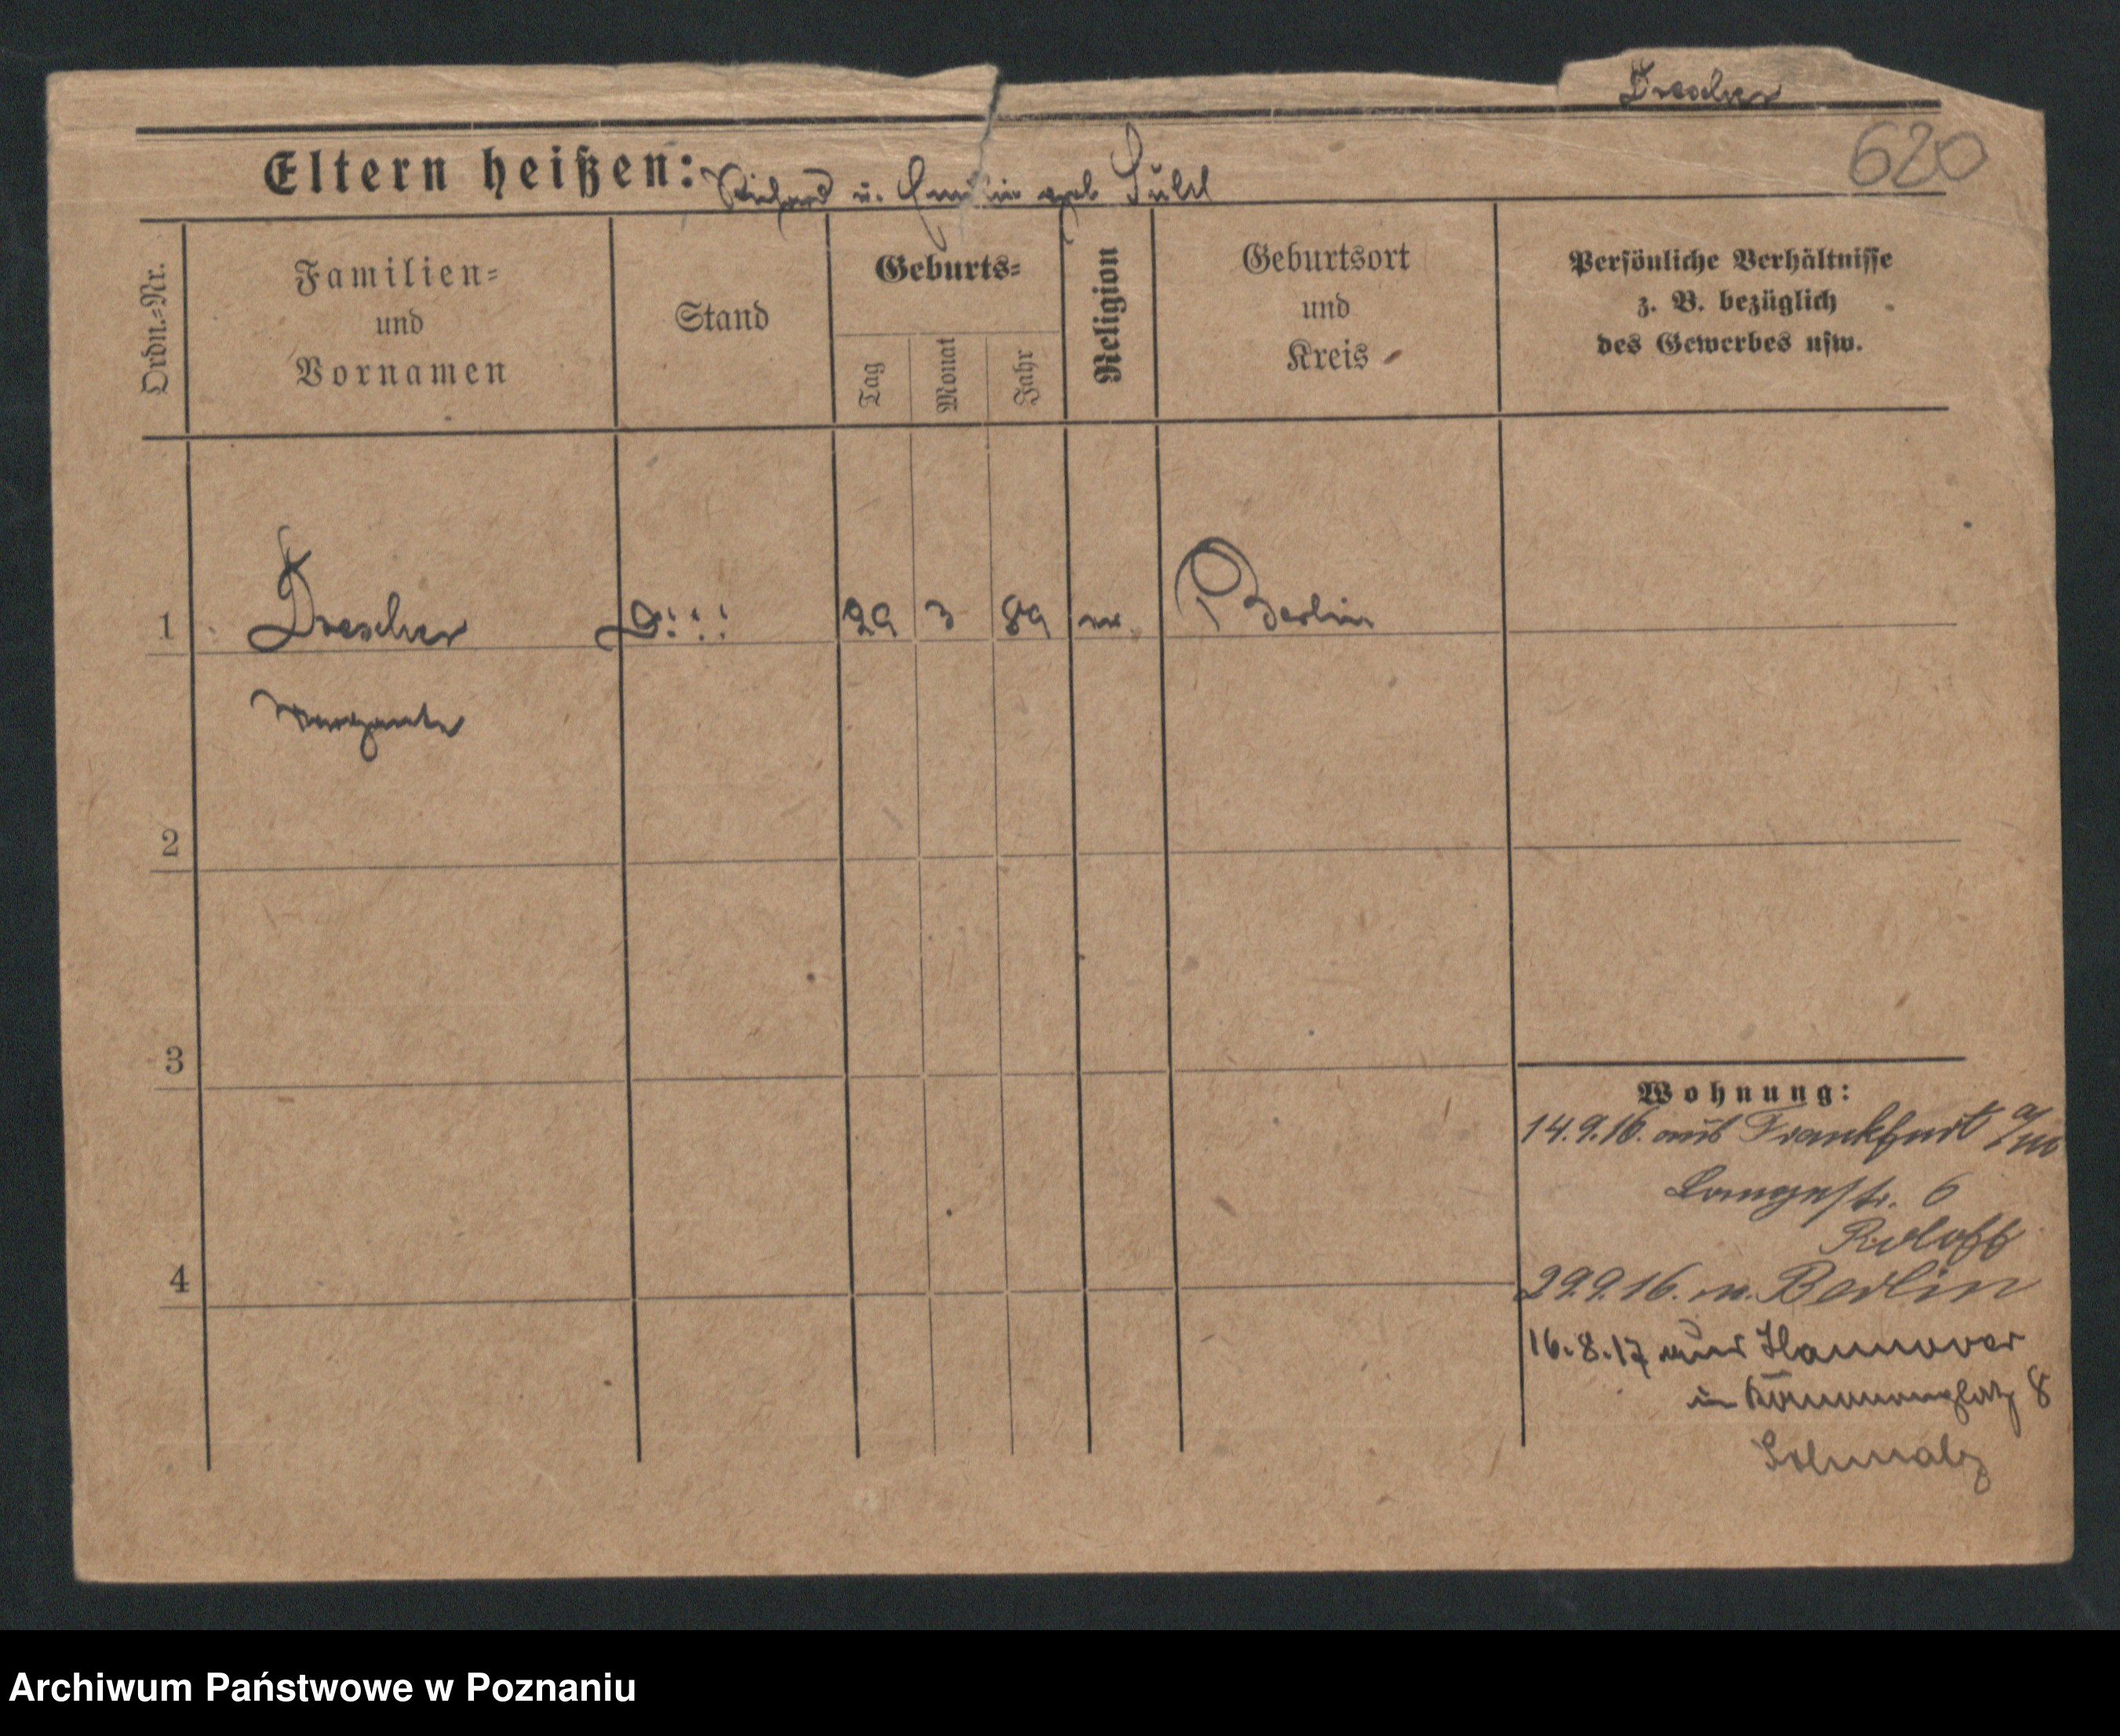 Drescher
620
Eltern heißen: Richard u. Emilie geb
Ordn.=Nr.
Familien=
und
Vornamen
Stand
Geburts=
Tag
Monat
Jahr
Religion
Geburtsort
und
Kreis
Persönliche Verhältnisse
z. B. bezüglich
des Gewerbes usw.
1 Drescher 29 3 89 Berlin
Margarete
2
3
4
Wohnung:
14.9.16. aus Frankfurt a/M
Langestr. 6
29.9.16. n. Berlin
16.8.17 aus Hannover
8
Schmalz
Archiwum Państwowe w Poznaniu